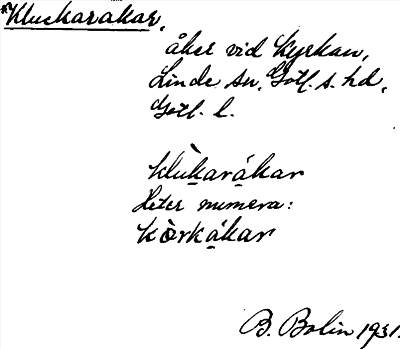 *Kluckaråkar,
åker vid kyrkan,
Linde sn, Gotl. s. hd,
Gotl. l.
klùkaråkar
Heter numera:
kòrkåkar
B. Bolin 1931.